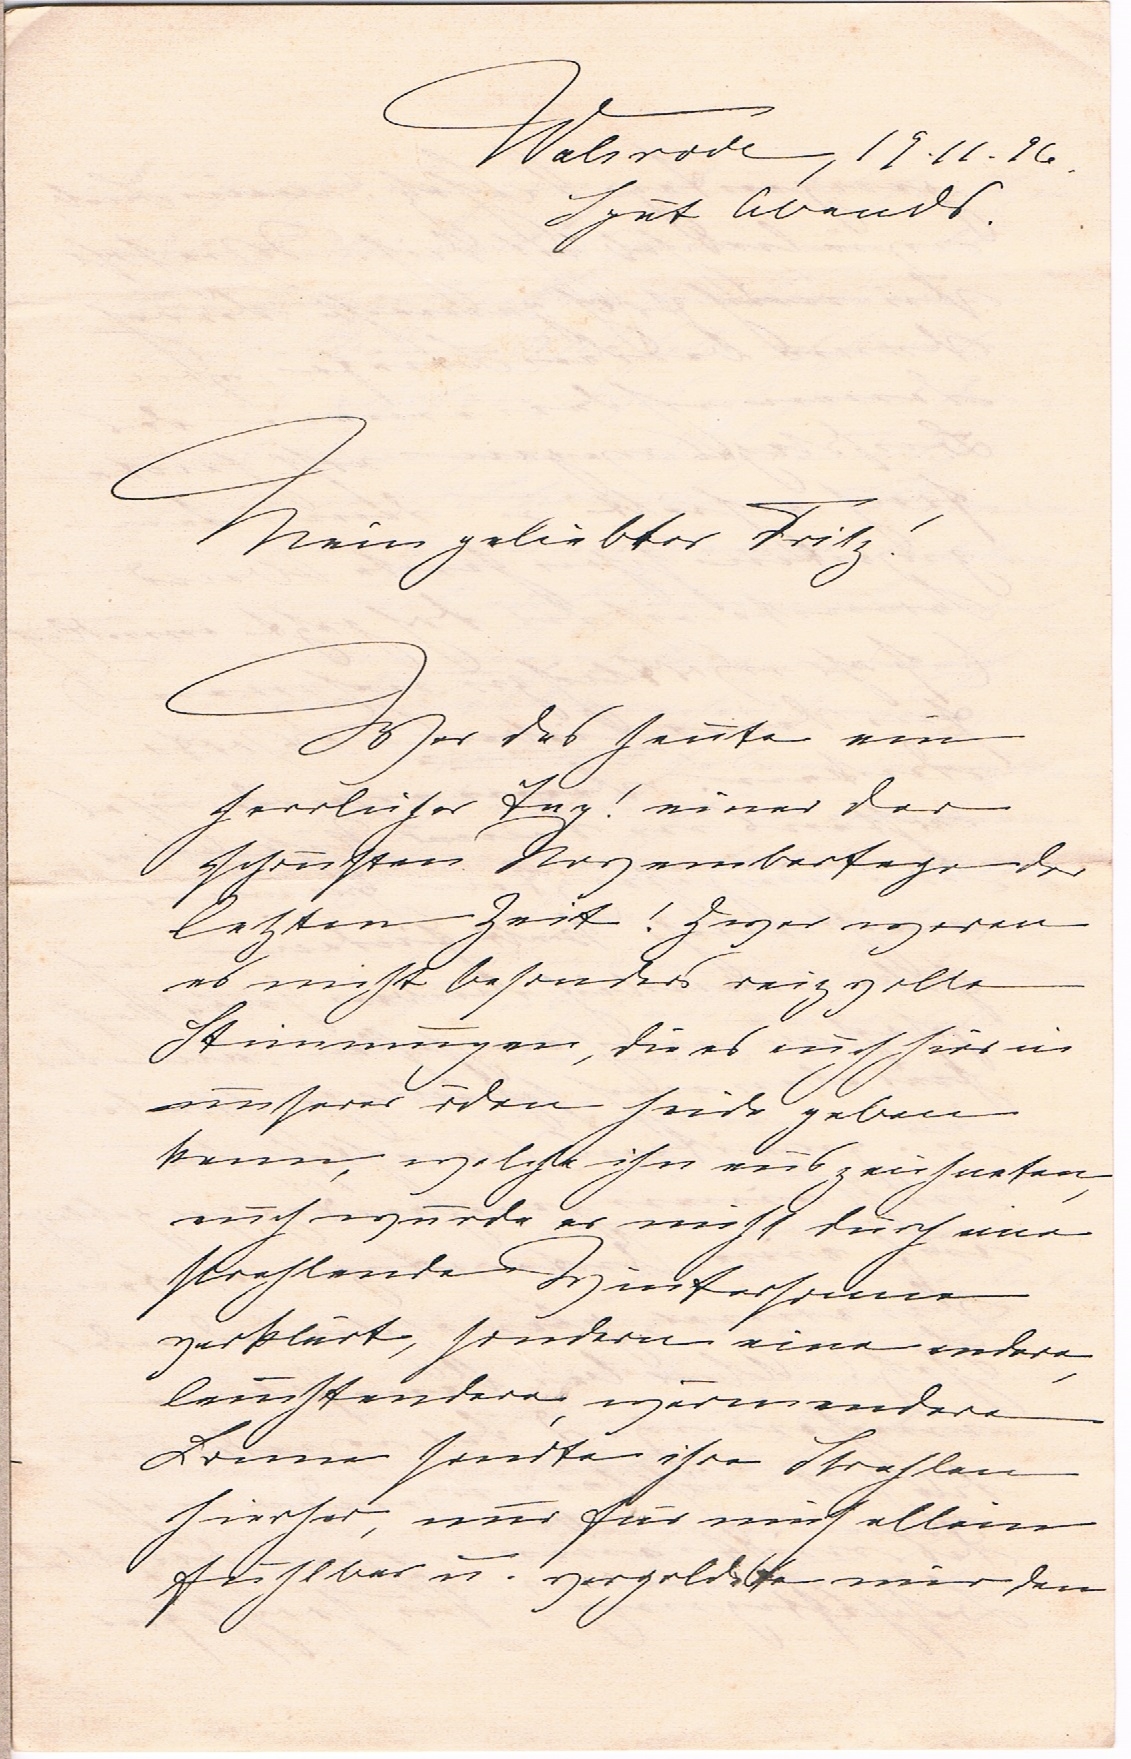 Walsrode, 19.11.96.
Spät Abends.
Mein geliebter Fritz!
War das heute ein
herrlicher Tag! einer der
schönsten Novembertage der
letzten Zeit! Zwar waren
es nicht besonders reizvolle
Stimmungen, die es auch hier in
unserer öden Heide geben
kann, welche ihn auszeichneten,
auch wurde er nicht durch eine
strahlende Wintersonne
verklärt, sondern eine andere,
leuchtendere, wärmendere
Sonne sandte ihre Strahlen
hierher, nur für mich allein
fühlbar u. vergoldete mir den